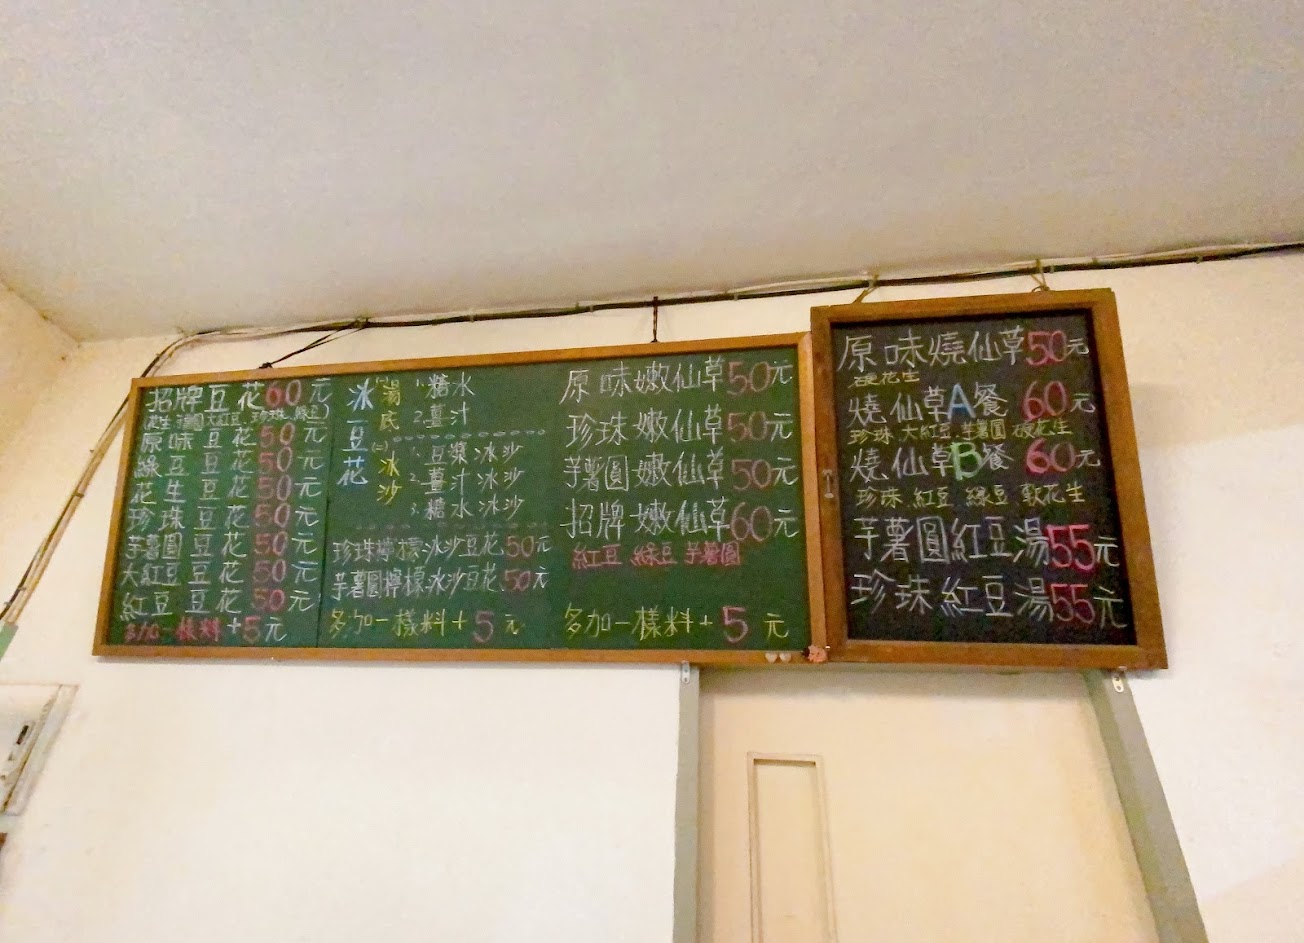 招牌豆花60元
原味豆花50元
綠豆豆花50元
花生豆花50元
珍珠豆花50元
芋薯圓豆花50元
大紅豆豆花50元
紅豆豆花50元
多加一樣料+5元
冰豆花
(一)湯底
1.糖水
2.薑汁
(二)冰沙
1.豆漿冰沙
2.薑汁冰沙
3.糖水冰沙
珍珠檸檬冰沙豆花50元
芋薯圓檸檬冰沙豆花50元
多加一樣料+5元
原味嫩仙草50元
珍珠嫩仙草50元
芋薯圓嫩仙草50元
招牌嫩仙草60元
紅豆 綠豆 芋薯圓
多加一樣料+5元
原味燒仙草50元
硬花生
燒仙草A餐 60元
珍珠 大紅豆 芋薯圓 硬花生
燒仙草B餐 60元
珍珠 紅豆 綠豆 軟花生
芋薯圓紅豆湯55元
珍珠紅豆湯55元